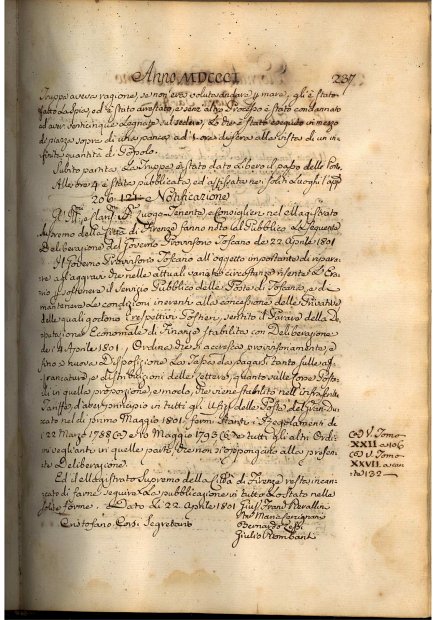 Anno MDCCCI.
237
Truppe aveva ragione, se non era voluto andare p mare, gli è stato
fatto la spia, ed è stato arrestato, e senz'altro Processo è stato condannato
ad aver venticinque Legnate sul sedere, Le ha è stato eseguito in mezzo
di piazza sopra di una panca ad 1 ora di sera alla vista di un in
finita quantità di Popolo.
Subito partita La Truppa è stato dato libero il passo delle Porte.
Alle ore 4 è stata pubblicata, ed affissata nei soliti Luoghi l'app
206. 121. e Notificazione
Luogo Tenente, e Consiglieri nel Magistrato
Supremo della Città di Firenze fanno noto al Pubblico La Seguente
Deliberazione del Governo Provvisorio Toscano de 22 Aprile 1801
Il Governo Provvisorio Toscano all'oggetto importante di ripara
re aggravi che nelle attuali variate circostanze risente L'Erario
p sostenere il Servizio Pubblico delle Poste di Toscana, e di
mantenere Le condizioni inerenti alla concessione delle Privative
delle quali godono i respettivi Postieri, sentito il Parere della De
putazione Economale di Finanze stabilita con Deliberazione
de 4 Aprile 1801. Ordina che si accresca provvisoriamente, e
fino a nuova Disposizione La Tassa da pagarsi tanto sulle af
francature, e distribuzioni delle Lettere, quanto sulle Corse Posta
li in quella proporzione, e modo, che viene stabilito nell'infrascritta
Tariffa, d'aver principio in tutti gli Ufizj delle Poste del Gran Du
cato nel dì primo Maggio 1801. fermi stanti i Regolamenti de
22 Marzo 1788 e 10 Maggio 1793 e tutti gli altri Ordi
ni veglianti in quelle parti, che non si oppongano alla presen
te Deliberazione.
Ed il Magistrato Supremo della Città di Firenze resta incari
cato di farne seguire La pubblicazione in tutto Lo Stato nelle
solite forme. Dato li 22 Aprile 1801
Cristofano Corsi Segretario
Bernardo
Giulio Piombanti
V. Tomo
XXII a 106
V. Tomo
XXVII. a car
te 132